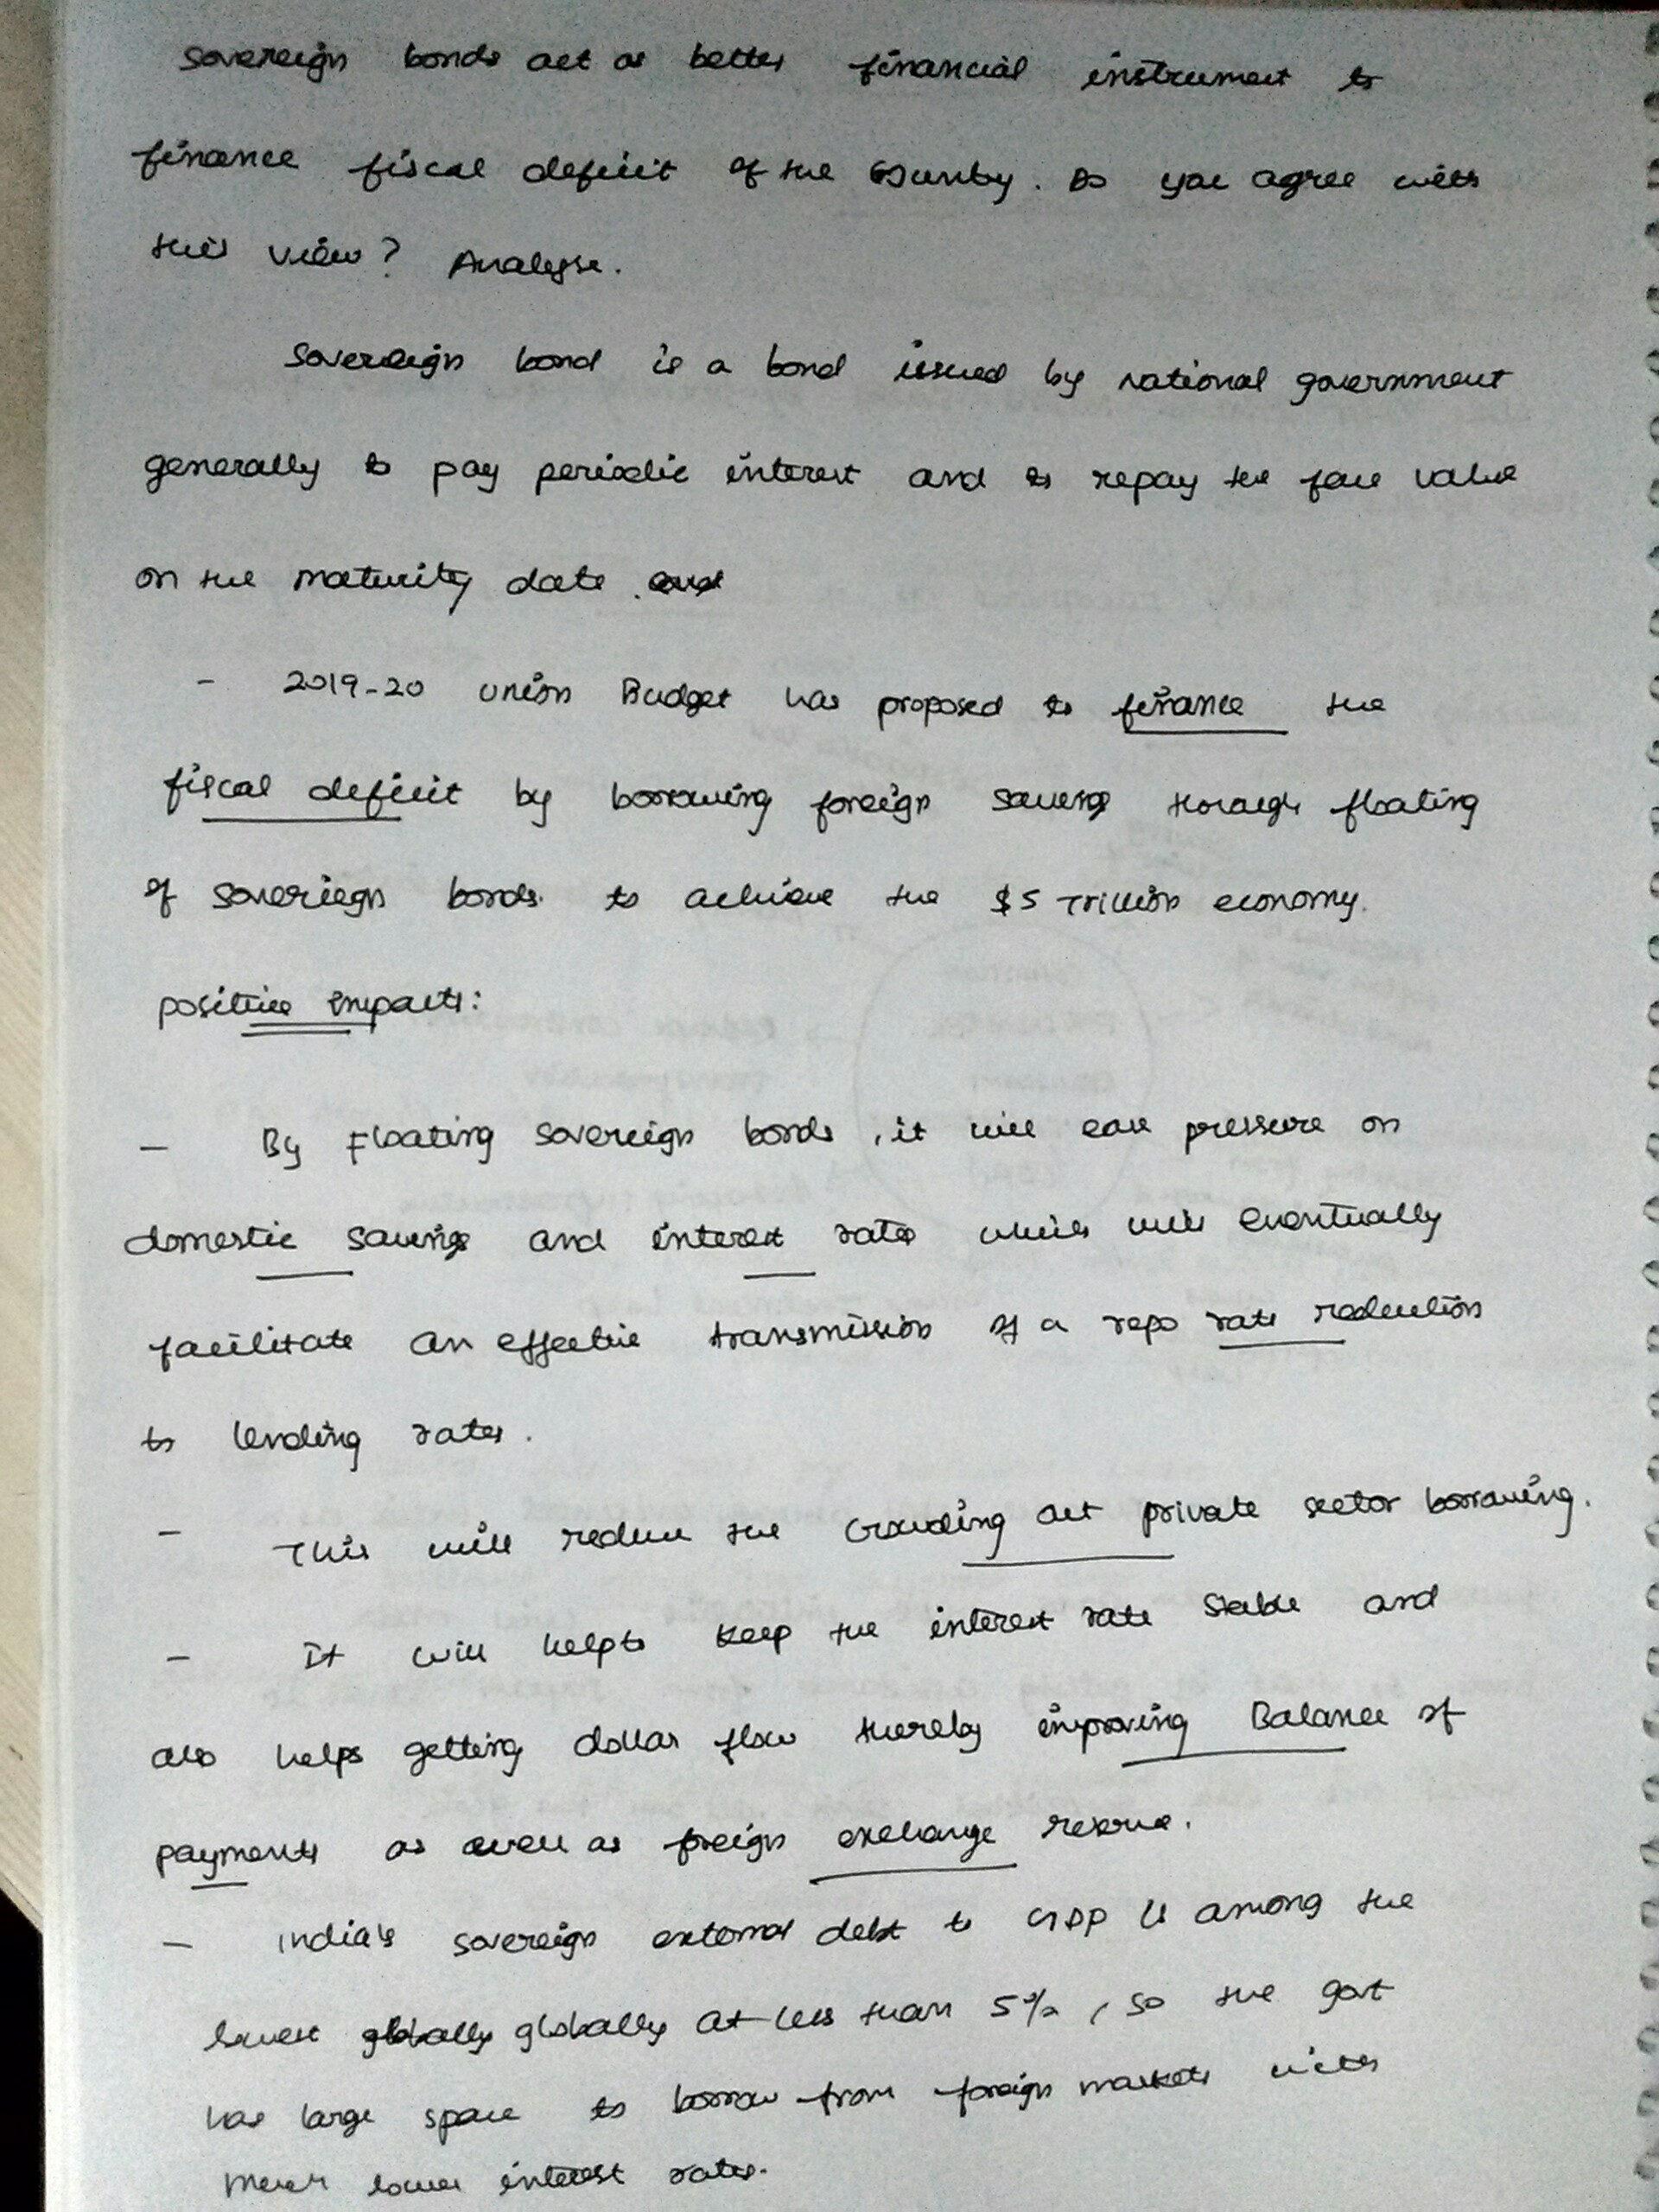 Sovereign bonds act as better financial instrument to
finance fiscal deficit of the country. Do you agree with
this view? Analyse.
Sovereign bond is a bond issued by national government
generally to pay periodic interest and to repay the face value
on the maturity date.
- 2019-20 Union Budget has proposed to finance the
fiscal deficit by borrowing foreign savings through floating
of sovereign bonds. to achieve the $5 Trillion economy.
positive impacts:
- By Floating sovereign bonds, it will ease pressure on
domestic savings and interest rates which will eventually
facilitate an effective transmission of a repo rate reduction
to lending rates.
- This will reduce the crowding out private sector borrowing.
- It will helps keep the interest rate stable and
also helps getting dollar flow thereby improving Balance of
payments as well as foreign exchange reserve.
- India's sovereign external debt to GDP is among the
lowest globally globally at less than 5%, so the govt
has large space to borrow from foreign markets with
much lower interest rates.